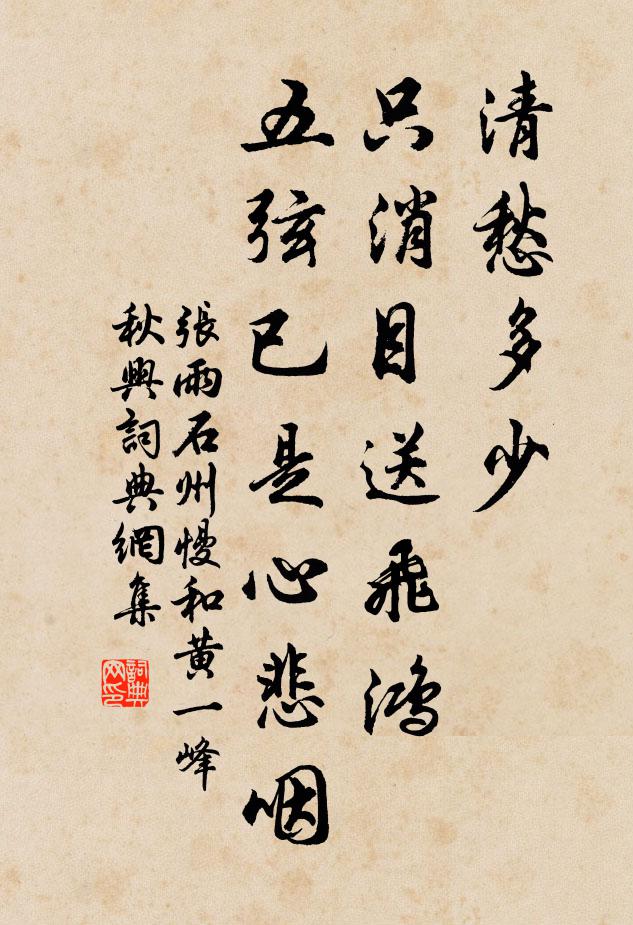 清愁多少
只消目送飛鴻
五弦已是心悲咽
張雨石州慢和黄一峰
秋興詞典網集
詞典
网印